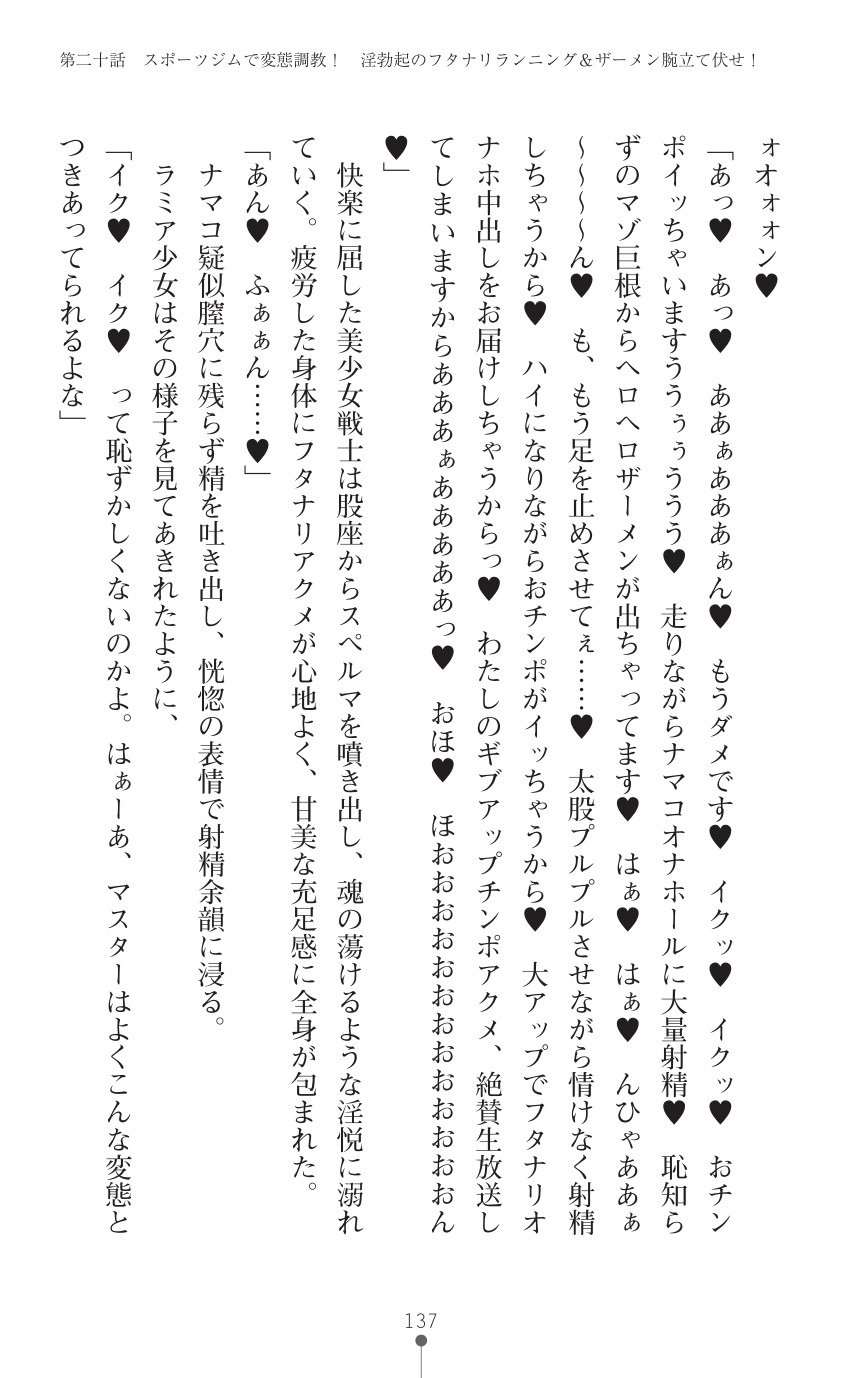 第二十話　スポーツジムで変態調教！　淫勃起のフタナリランニング＆ザーメン腕立て伏せ！
ォオォォン♥
「あっ♥　あっ♥　ああぁあああぁん♥　もうダメです♥　イクッ♥　イクッ♥　おチン
ポイッちゃいますううぅぅううう♥　走りながらナマコオナホールに大量射精♥　恥知ら
ずのマゾ巨根からヘロヘロザーメンが出ちゃってます♥　はぁ♥　はぁ♥　んひゃああぁ
～～～～ん♥　も、もう足を止めさせてぇ……♥　太股プルプルさせながら情けなく射精
しちゃうから♥　ハイになりながらおチンポがイッちゃうから♥　大アップでフタナリオ
ナホ中出しをお届けしちゃうからっ♥　わたしのギブアップチンポアクメ、絶賛生放送し
てしまいますからあああぁああああぁっ♥　おほ♥　ほおおおおおおおおおおおおおん
♥」
　快楽に屈した美少女戦士は股座からスペルマを噴き出し、魂の蕩けるような淫悦に溺れ
ていく。疲労した身体にフタナリアクメが心地よく、甘美な充足感に全身が包まれた。
「あん♥　ふぁぁん……♥」
　ナマコ疑似膣穴に残らず精を吐き出し、恍惚の表情で射精余韻に浸る。
　ラミア少女はその様子を見てあきれたように、
「イク♥　イク♥　って恥ずかしくないのかよ。はぁーあ、マスターはよくこんな変態と
つきあってられるよな」
137